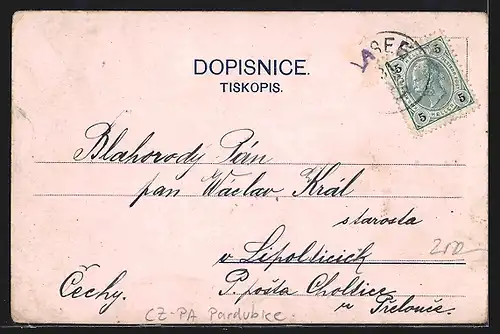 DOPISNICE.
TISKOPIS.
5 5
5 5
Blahorody Pán
pan Wáclav Král
starosta
v Lipolticích
P. pošta Choltice
Přelouče.
Čechy.
CZ-PA Pardubice.